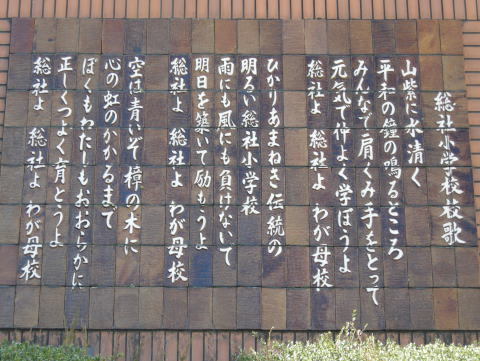 総社小学校校歌
山紫に水清く
平和の鐘の鳴るところ
みんなで肩くみ手をとって
元気で仲よく学ぼうよ
総社よ 総社よ わが母校
ひかりあまねき伝統の
明るい総社小学校
雨にも風にも負けないで
明日を築いて励もうよ
総社よ 総社よ わが母校
空は青いぞ樟の木に
心の虹のかかるまで
ぼくもわたしもおおらかに
正しくつよく育とうよ
総社よ 総社よ わが母校